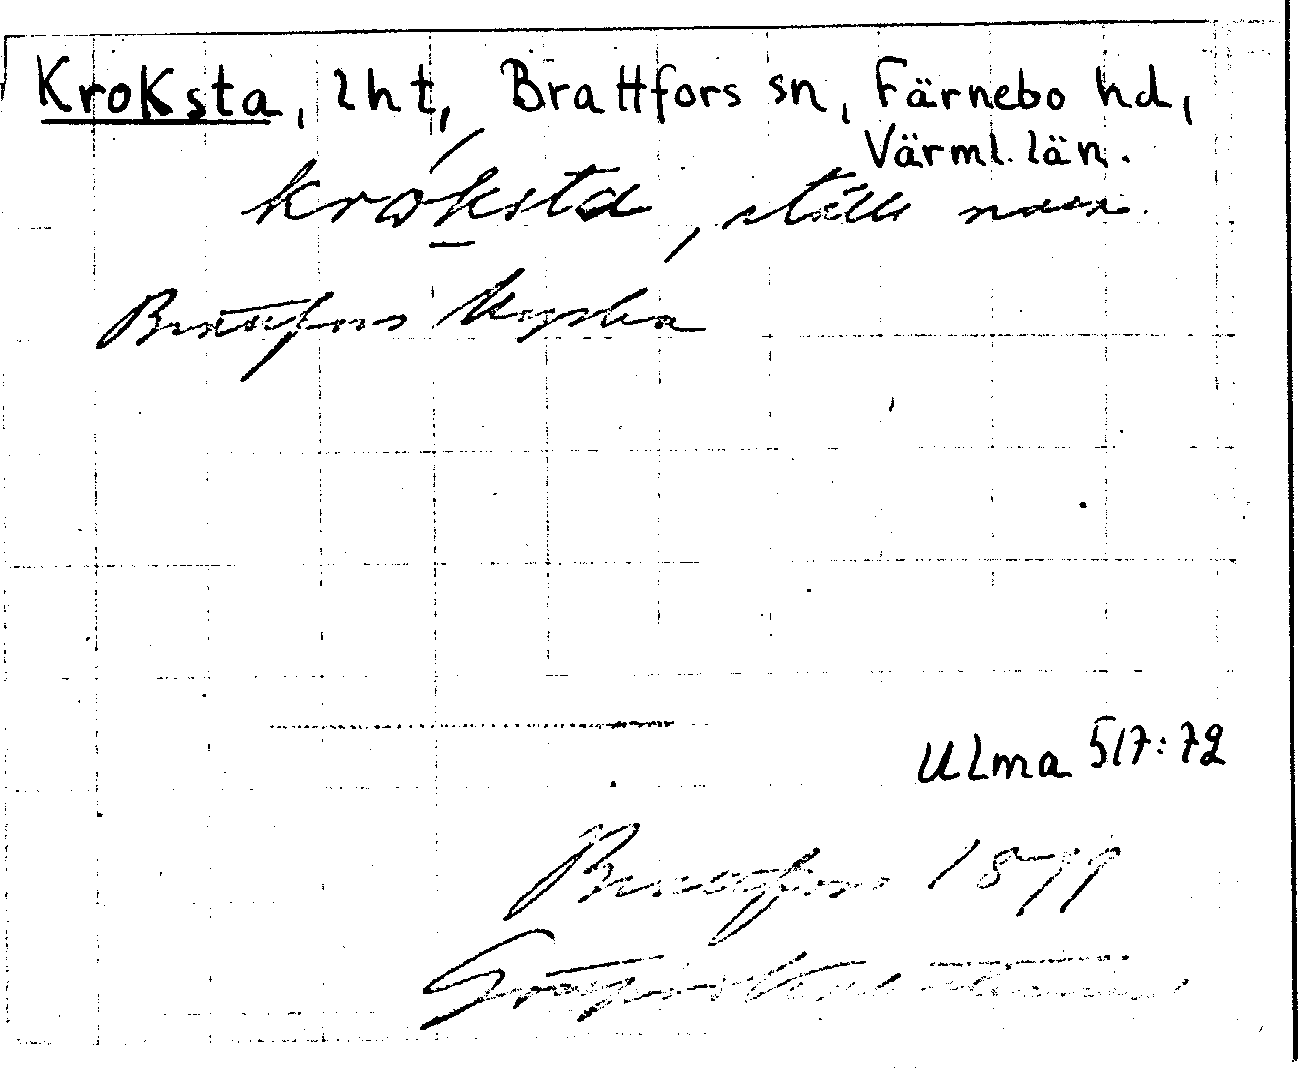 Kroksta, lht, Brattfors sn, Färnebo hd,
Värml. län.
kroksta, ställe nära
Brattfors kyrka
Ulma 517:72
Brattfors 1879